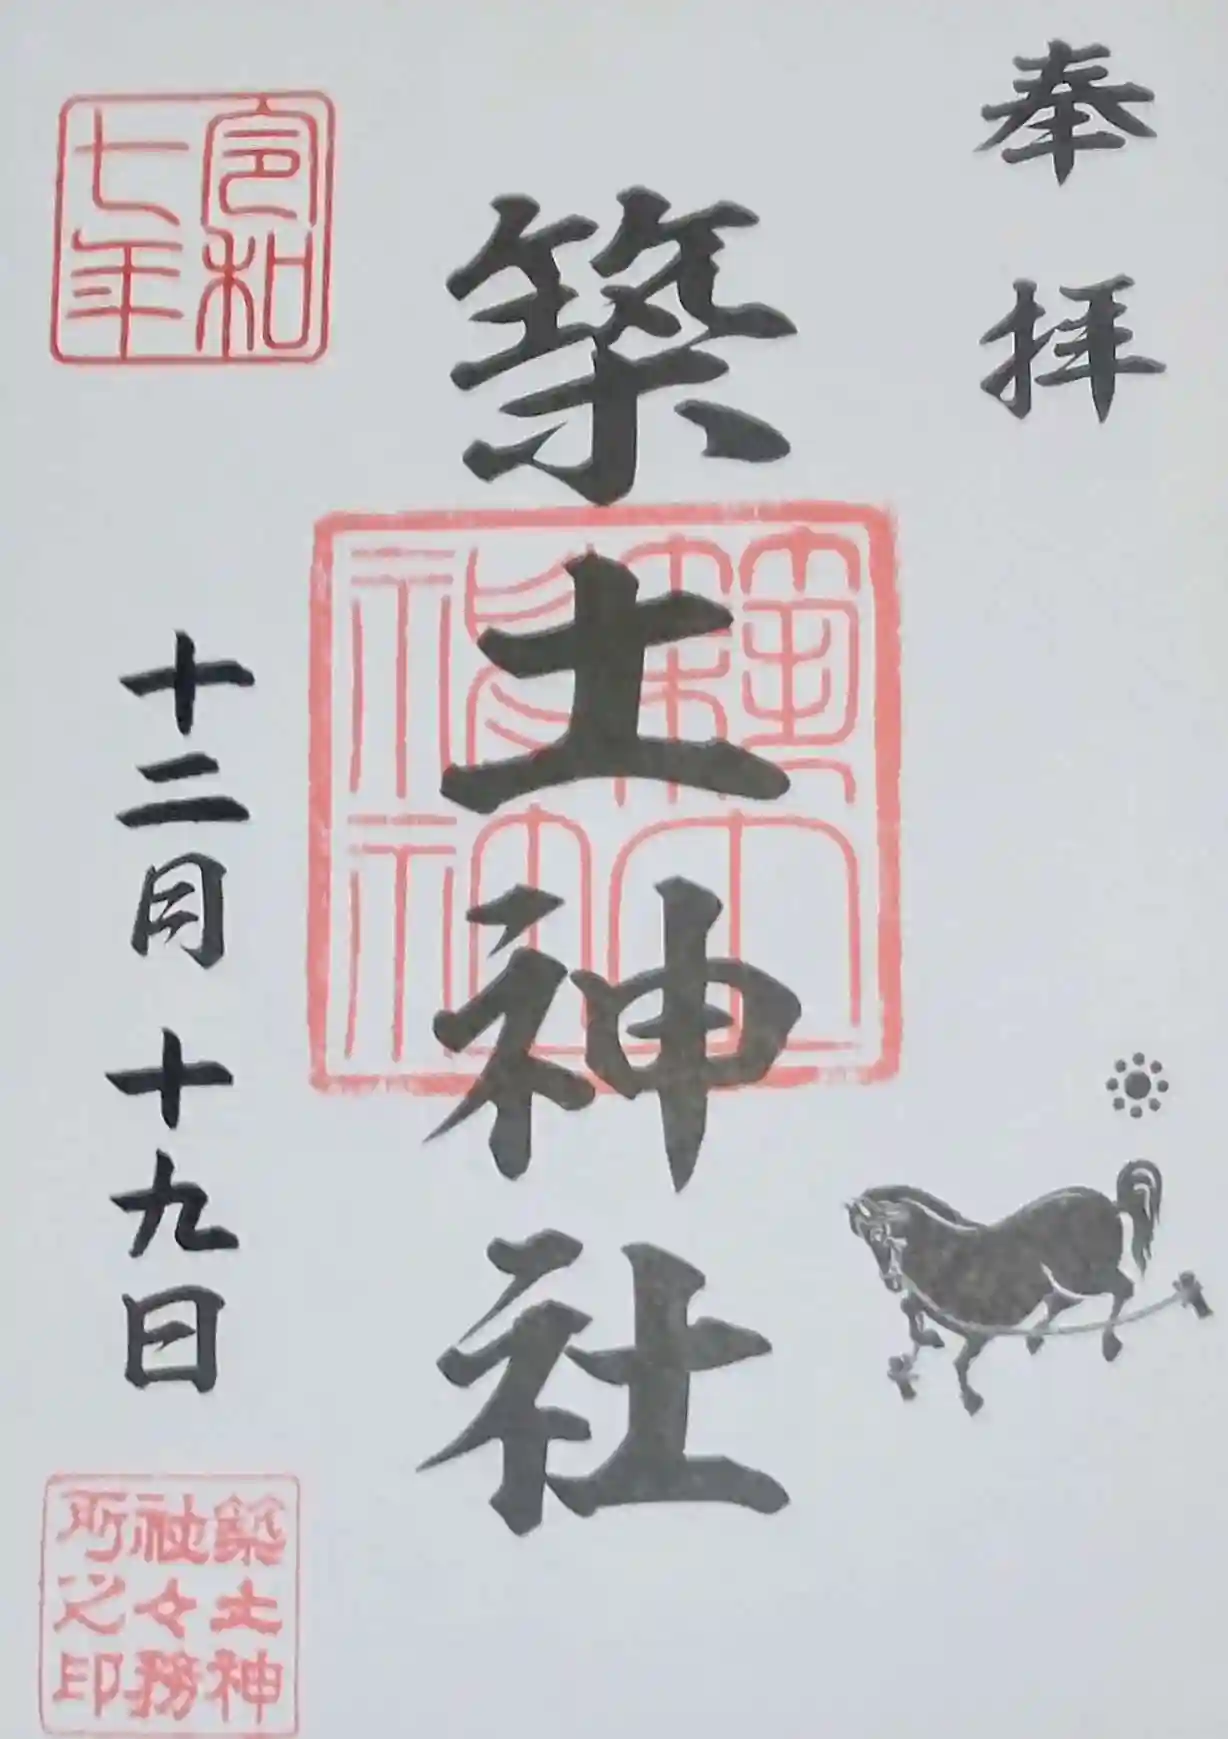 奉拝
築土神社
令和七年
十二月十九日
築土神社々務所之印